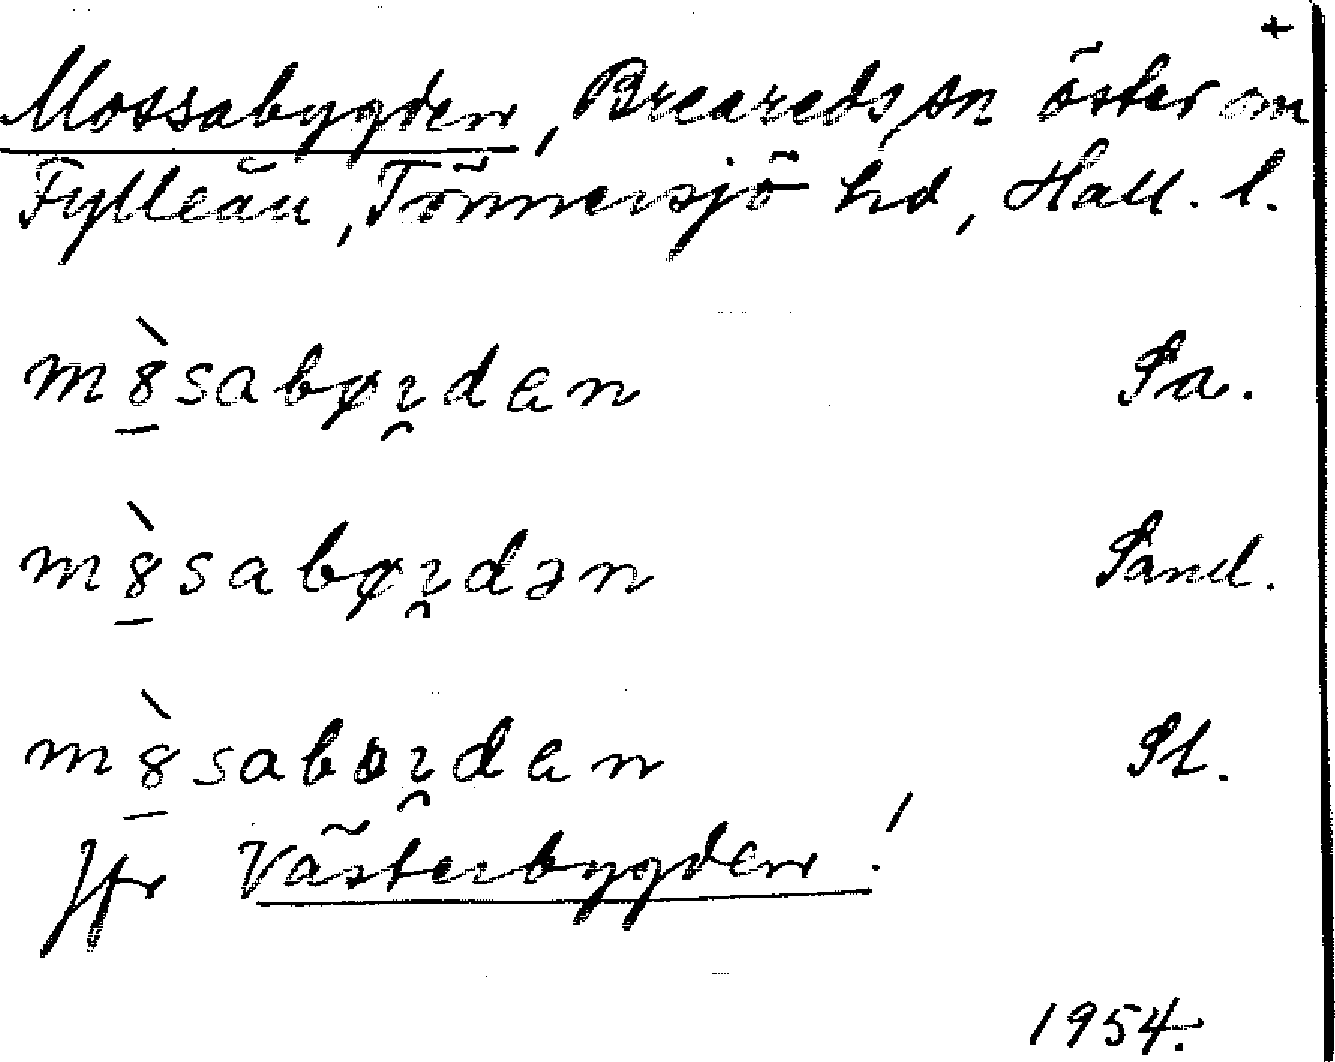 +
Mossabygden, Breareds sn öster om
Fylleån, Tönnersjö hd, Hall. l.
m8̠̀sabøı̯dan Pa.
m8̠̀sabøı̯dən Pand.
m8̠̀saboı̯dan Pl.
Jfr Västerbygden!
1954.